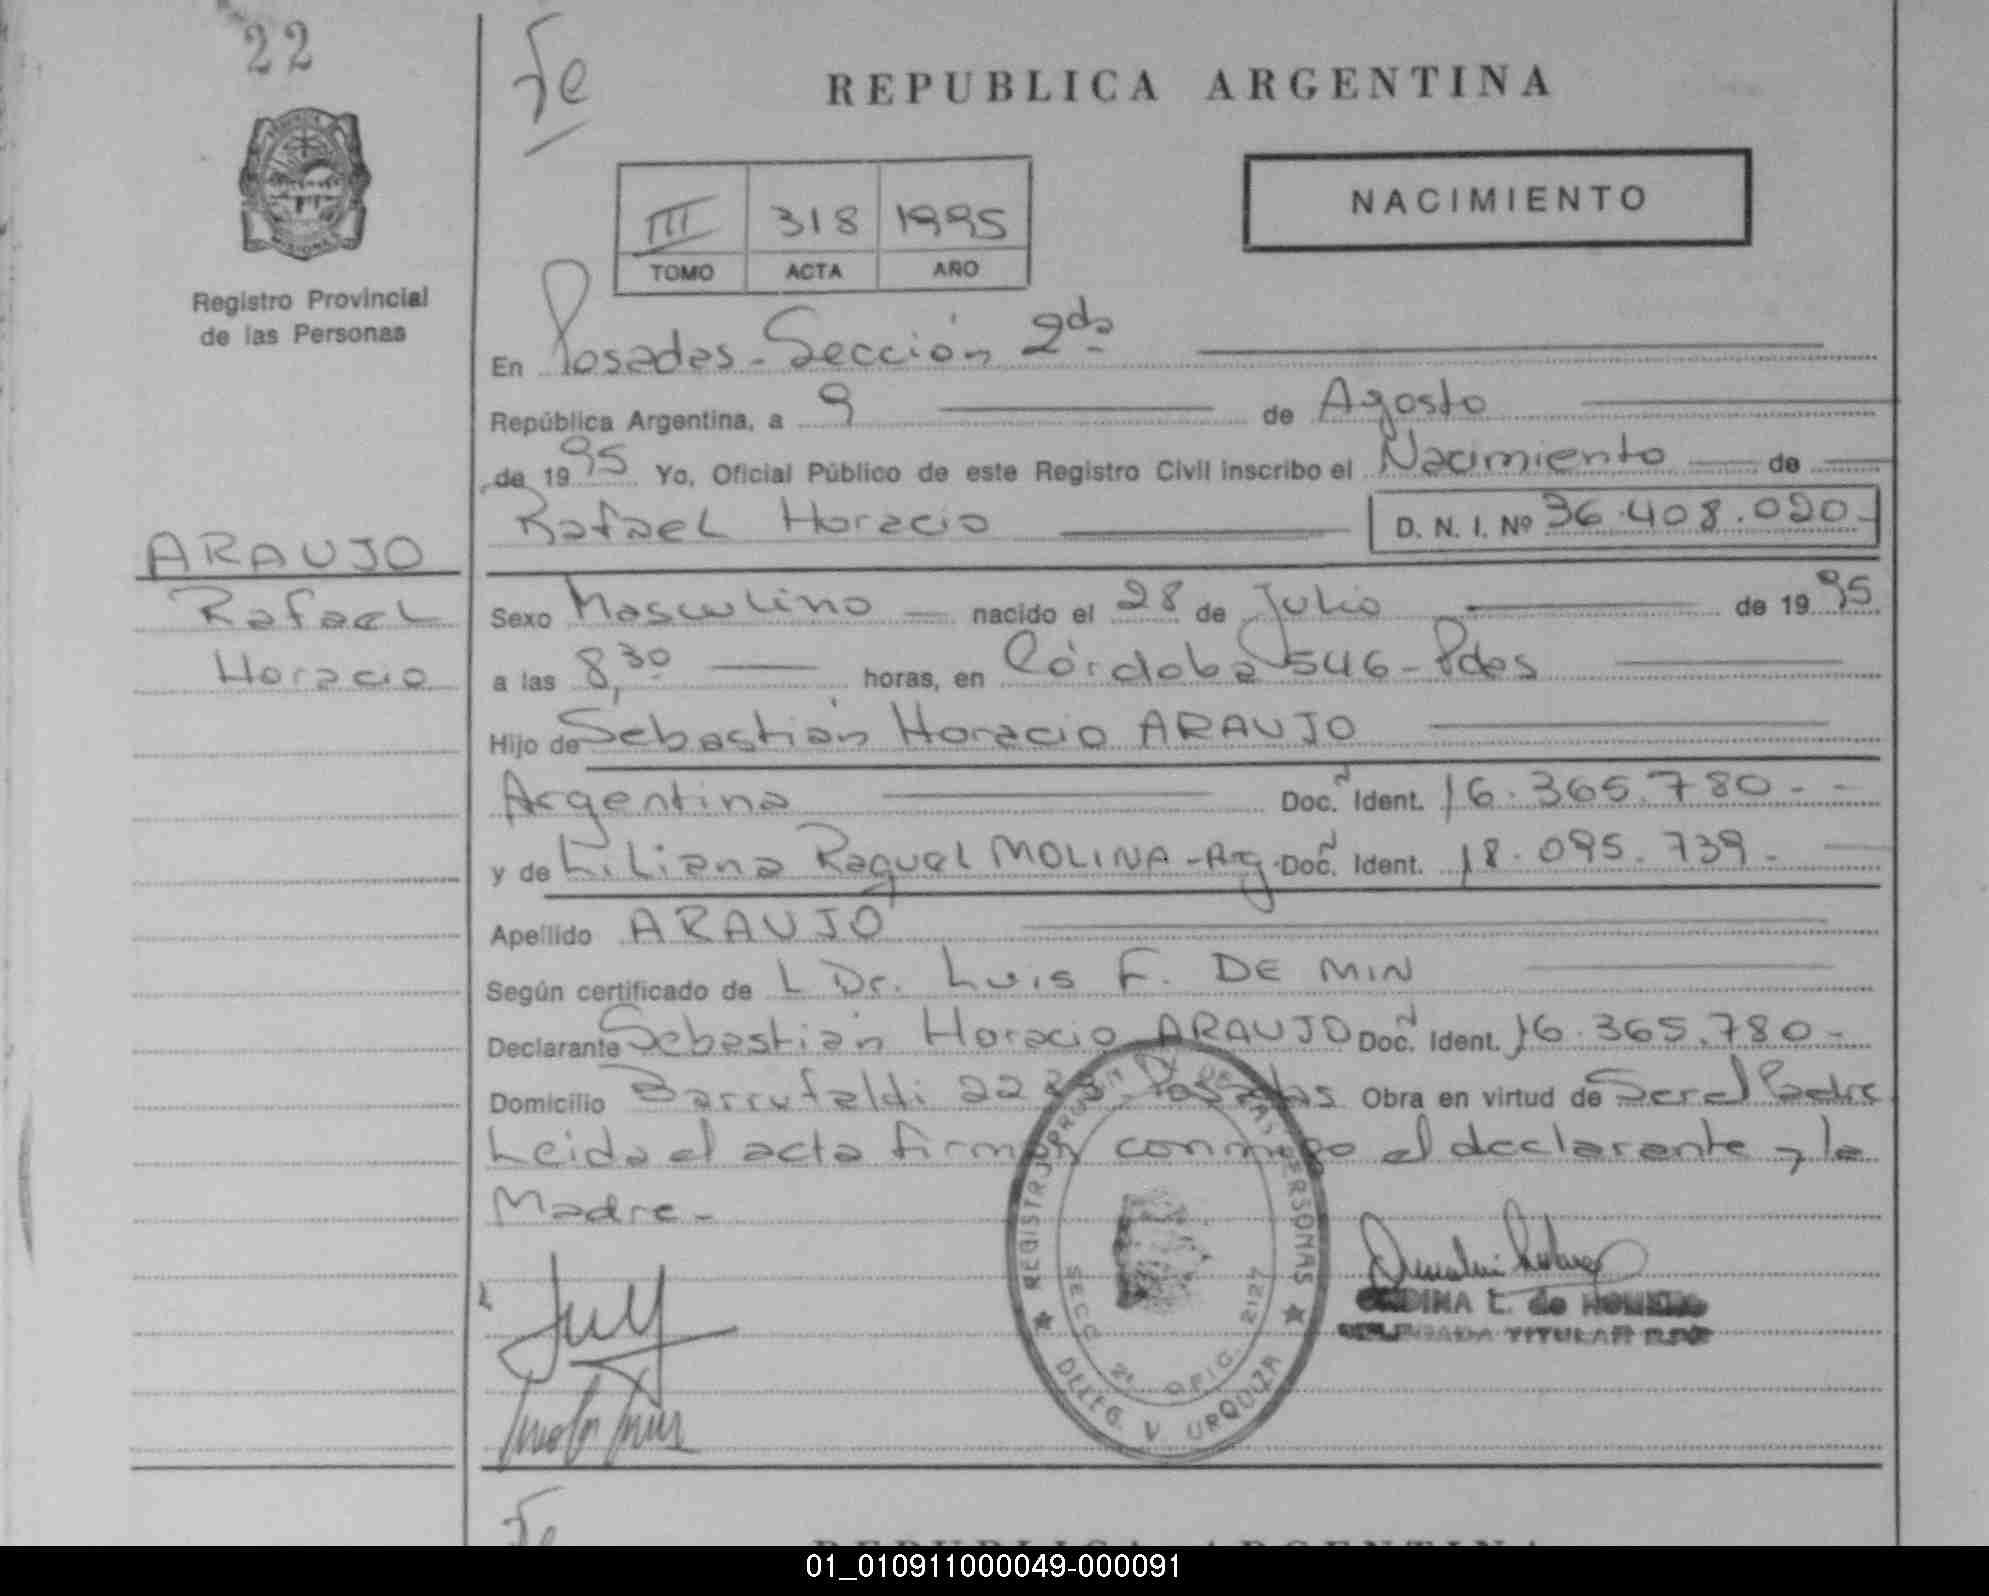 22
Fe
REPUBLICA ARGENTINA
NACIMIENTO
III 318 1995
TOMO ACTA AÑO
Registro Provincial
de las Personas
En Posadas - Sección 2da
República Argentina, a 9 de Agosto
de 1995 Yo, Oficial Público de este Registro Civil inscribo el Nacimiento de
Rafael Horacio D. N. I. Nº 36.408.020-
ARAUJO
Rafael
Horacio
Sexo Masculino nacido el 28 de Julio de 1995
a las 8,30 horas, en Córdoba 546 - Pdas
Hijo de Sebastián Horacio ARAUJO
Argentina Doc. Ident. 16.365.780 - -
y de Liliana Raquel MOLINA - Arg. Doc. Ident. 18.095.739 -
Apellido ARAUJO
Según certificado de L Dr. Luis F. DE MIN
Declarante Sebastián Horacio ARAUJO Doc. Ident. 16.365.780 -
Domicilio Barrufaldi Posadas Obra en virtud de Ser el Padre
Leida el acta firman conmigo el declarante y la
Madre -
REGISTRO DE LAS PERSONAS
SECC. 2ª OFIC. 2127
DELEG. V. URQUIZA
E. de
TITULAR
Fe
REPUBLICA ARGENTINA
01_010911000049-000091